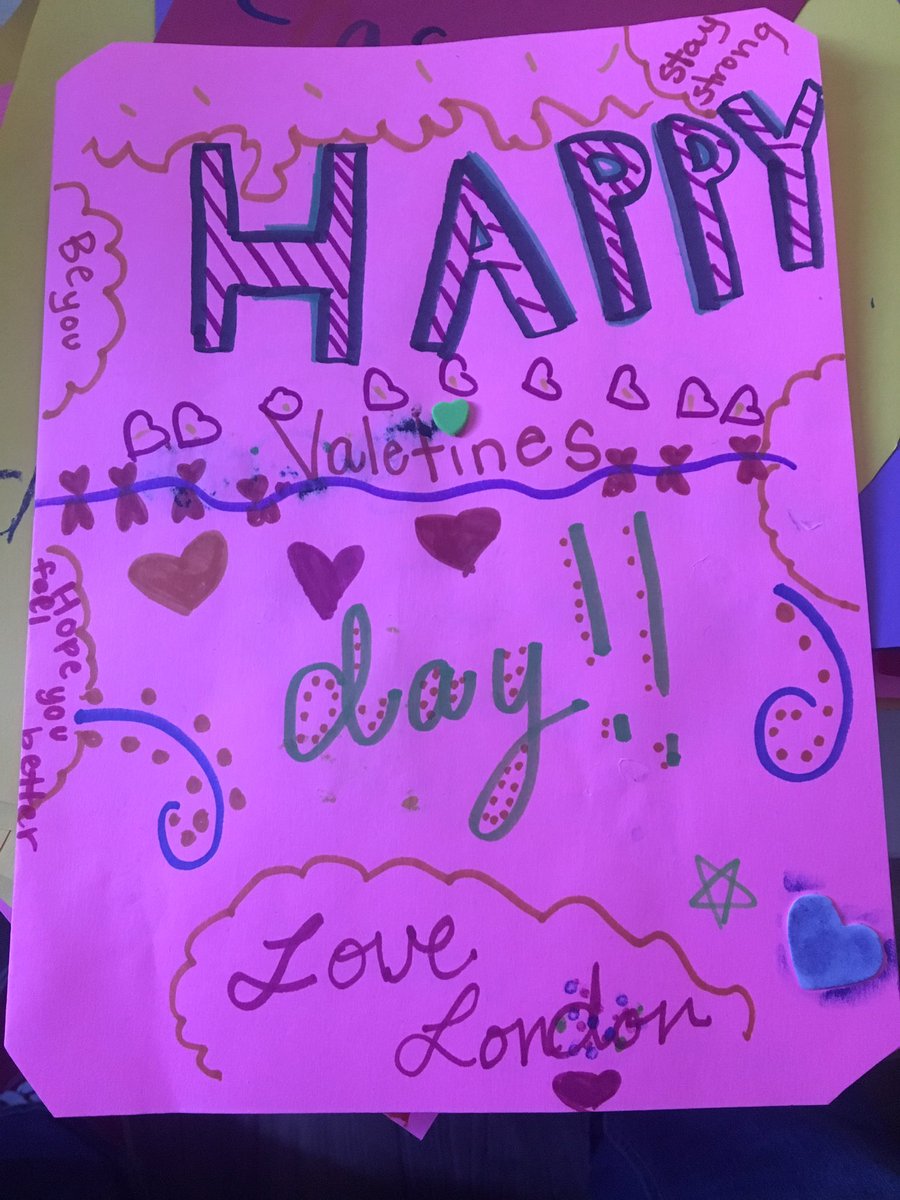 stay
strong
HAPPY
Be you
Valetines
day!!
Hope you
feel better
Love
London